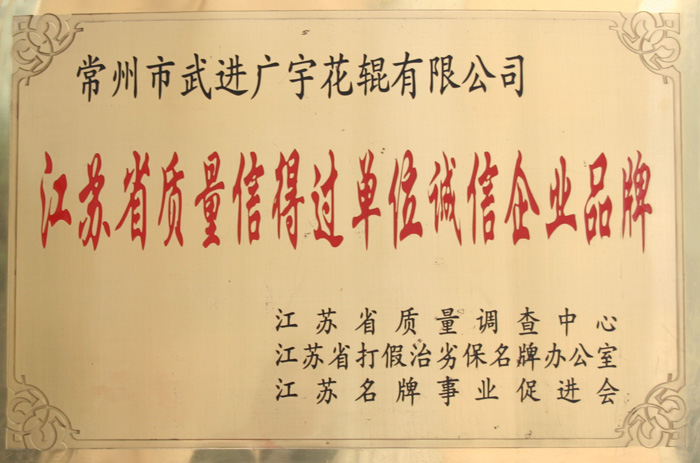 常州市武进广宇花辊有限公司
江苏省质量信得过单位诚信企业品牌
江苏省质量调查中心
江苏省打假治劣保名牌办公室
江苏名牌事业促进会